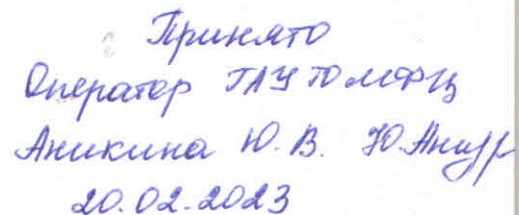 Принято
Оператор ГАУ ТО МФЦ
Аникина Ю.В. Ю.Аниф
20.02.2023